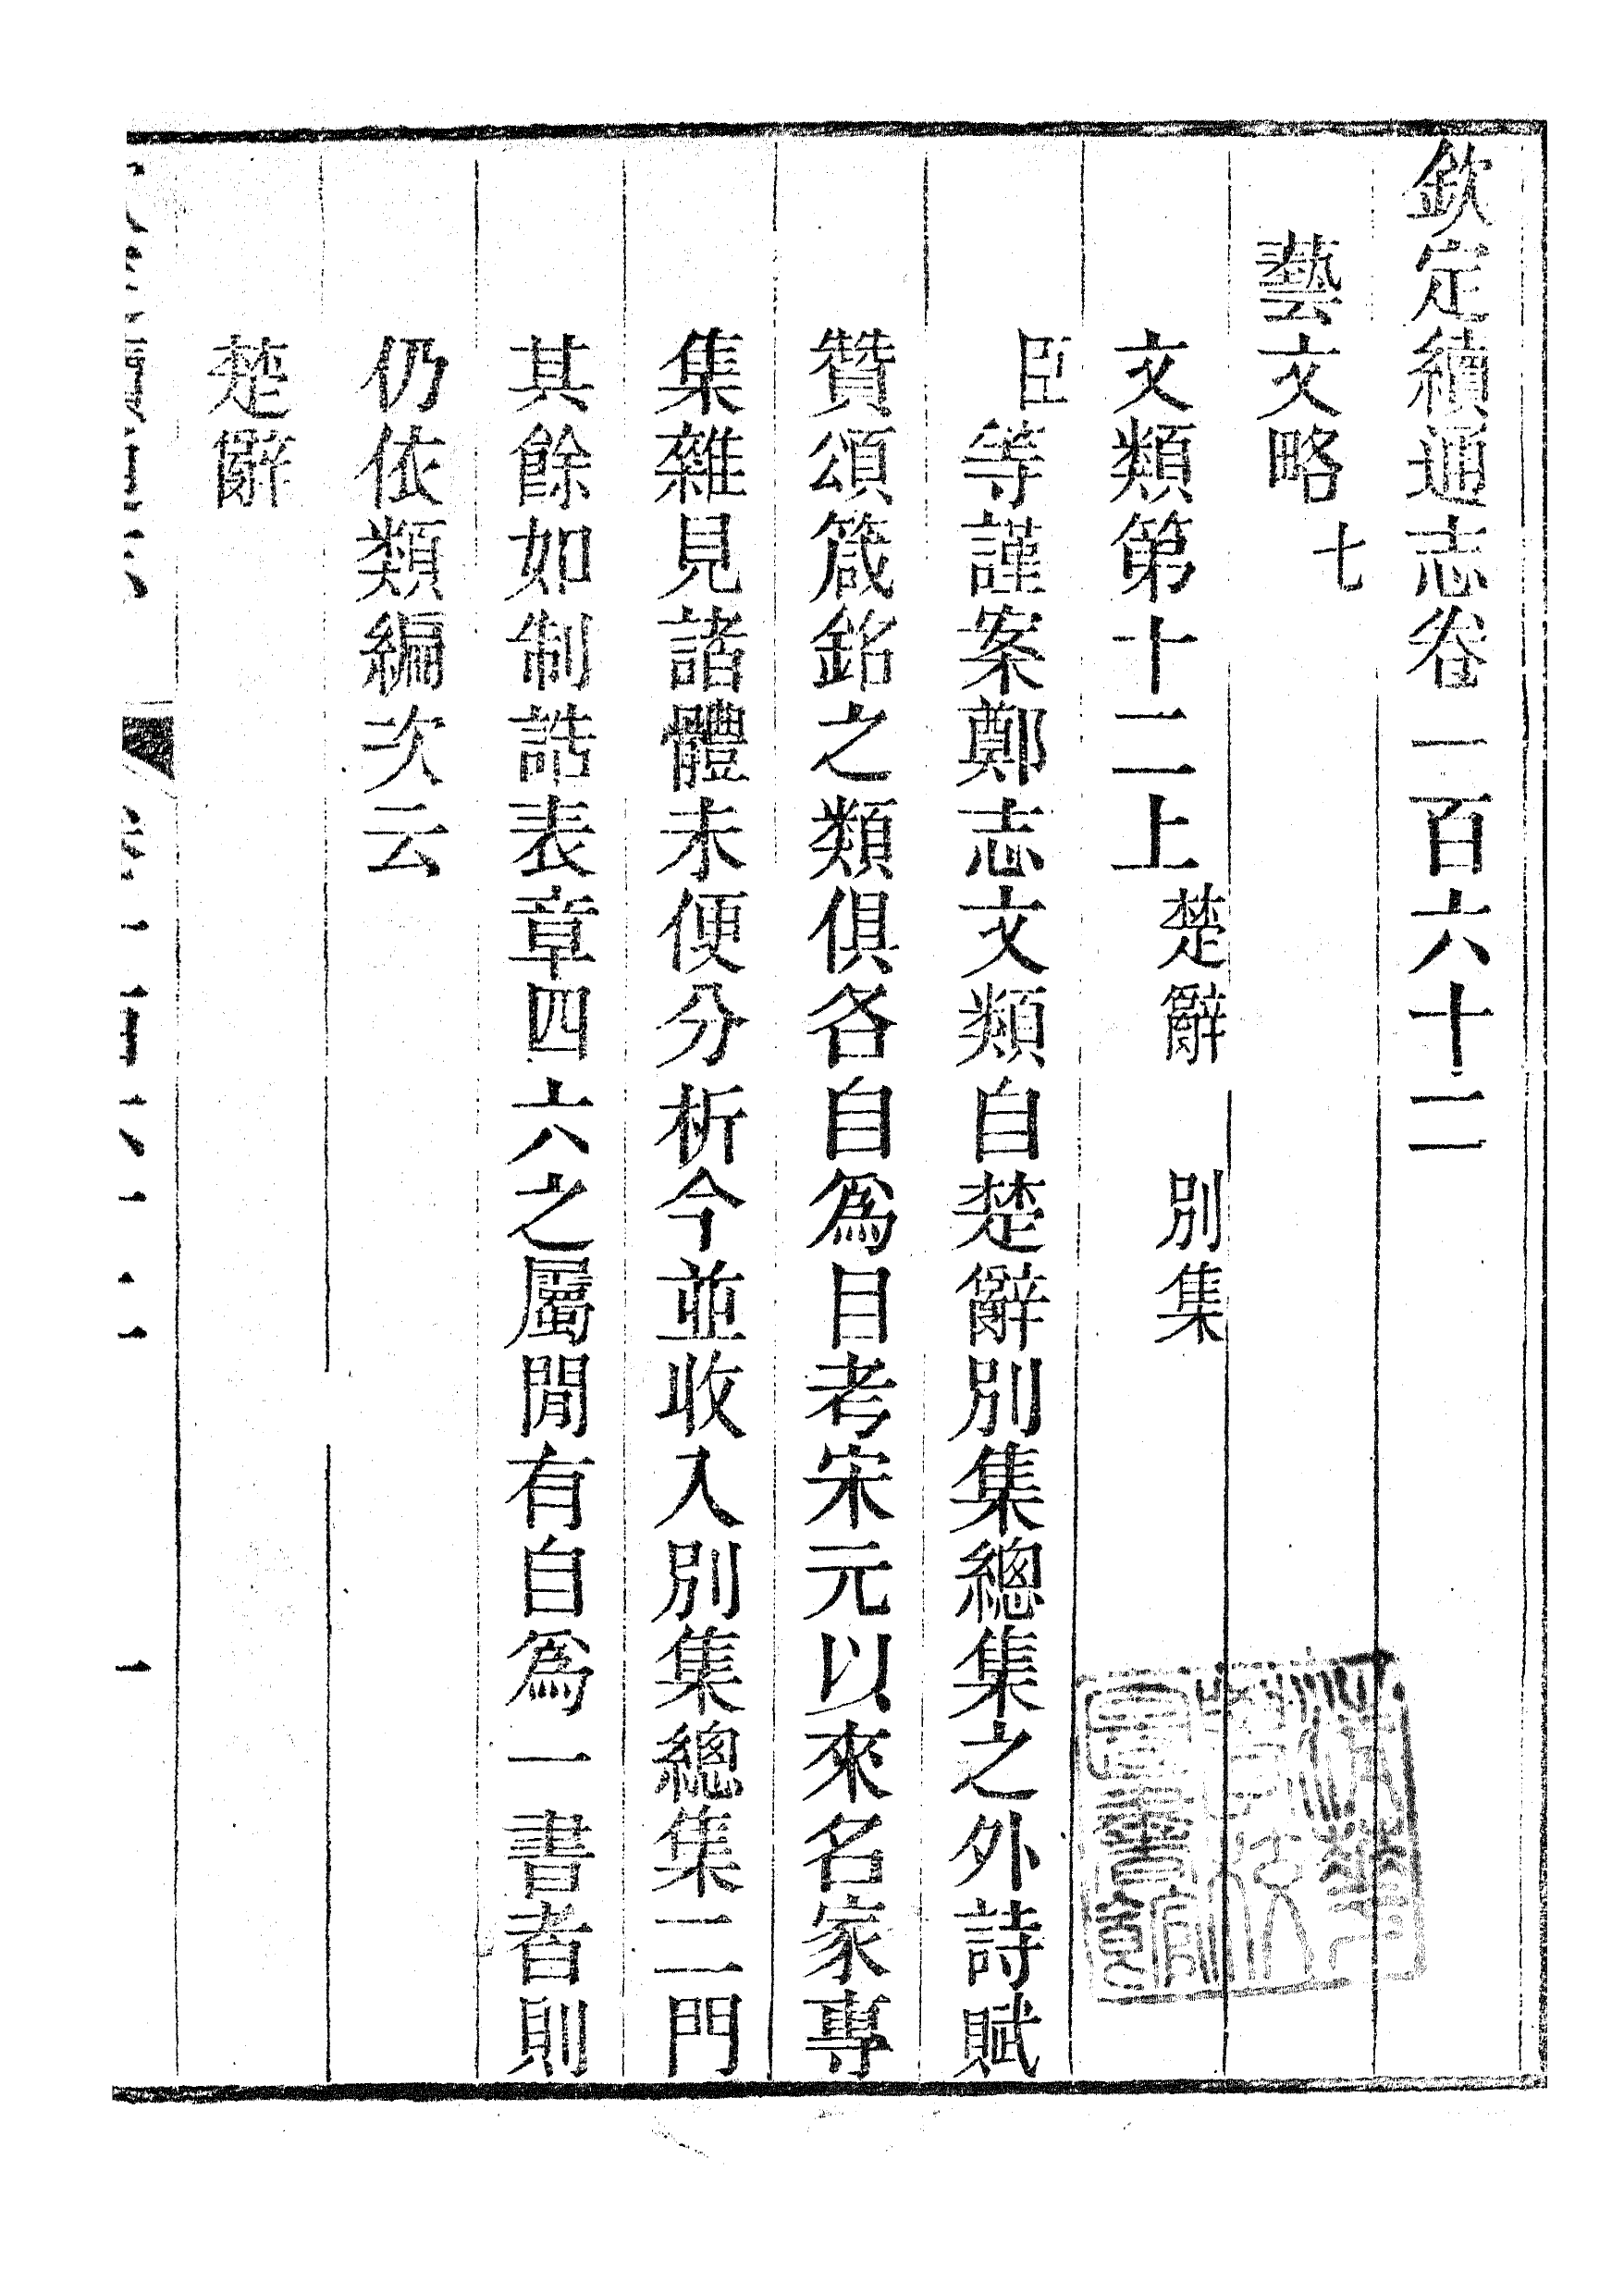 欽定續通志卷一百六十二
藝文略七
文類第十二上 楚辭 別集
臣等謹案鄭志文類自楚辭別集總集之外詩賦
贊頌箴銘之類俱各自爲目考宋元以來名家專
集雜見諸體未便分析今並收入別集總集二門
其餘如制誥表章四六之屬閒有自爲一書者則
仍依類編次云
楚辭